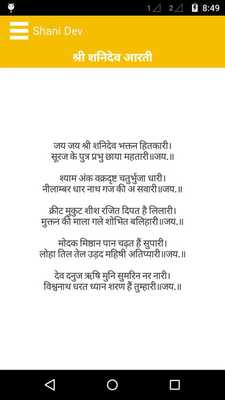 8:49
Shani Dev
श्री शनिदेव आरती
जय जय श्री शनिदेव भक्तन हितकारी।
सूरज के पुत्र प्रभु छाया महतारी॥जय.॥
श्याम अंक वक्रदृष्ट चतुर्भुजा धारी।
नीलाम्बर धार नाथ गज की अ सवारी॥जय.॥
क्रीट मुकुट शीश रजित दिपत है लिलारी।
मुक्तन की माला गले शोभित बलिहारी॥जय.॥
मोदक मिष्ठान पान चढ़त हैं सुपारी।
लोहा तिल तेल उड़द महिषी अतिप्यारी॥जय.॥
देव दनुज ऋषि मुनि सुमरिन नर नारी।
विश्वनाथ धरत ध्यान शरण हैं तुम्हारी॥जय.॥